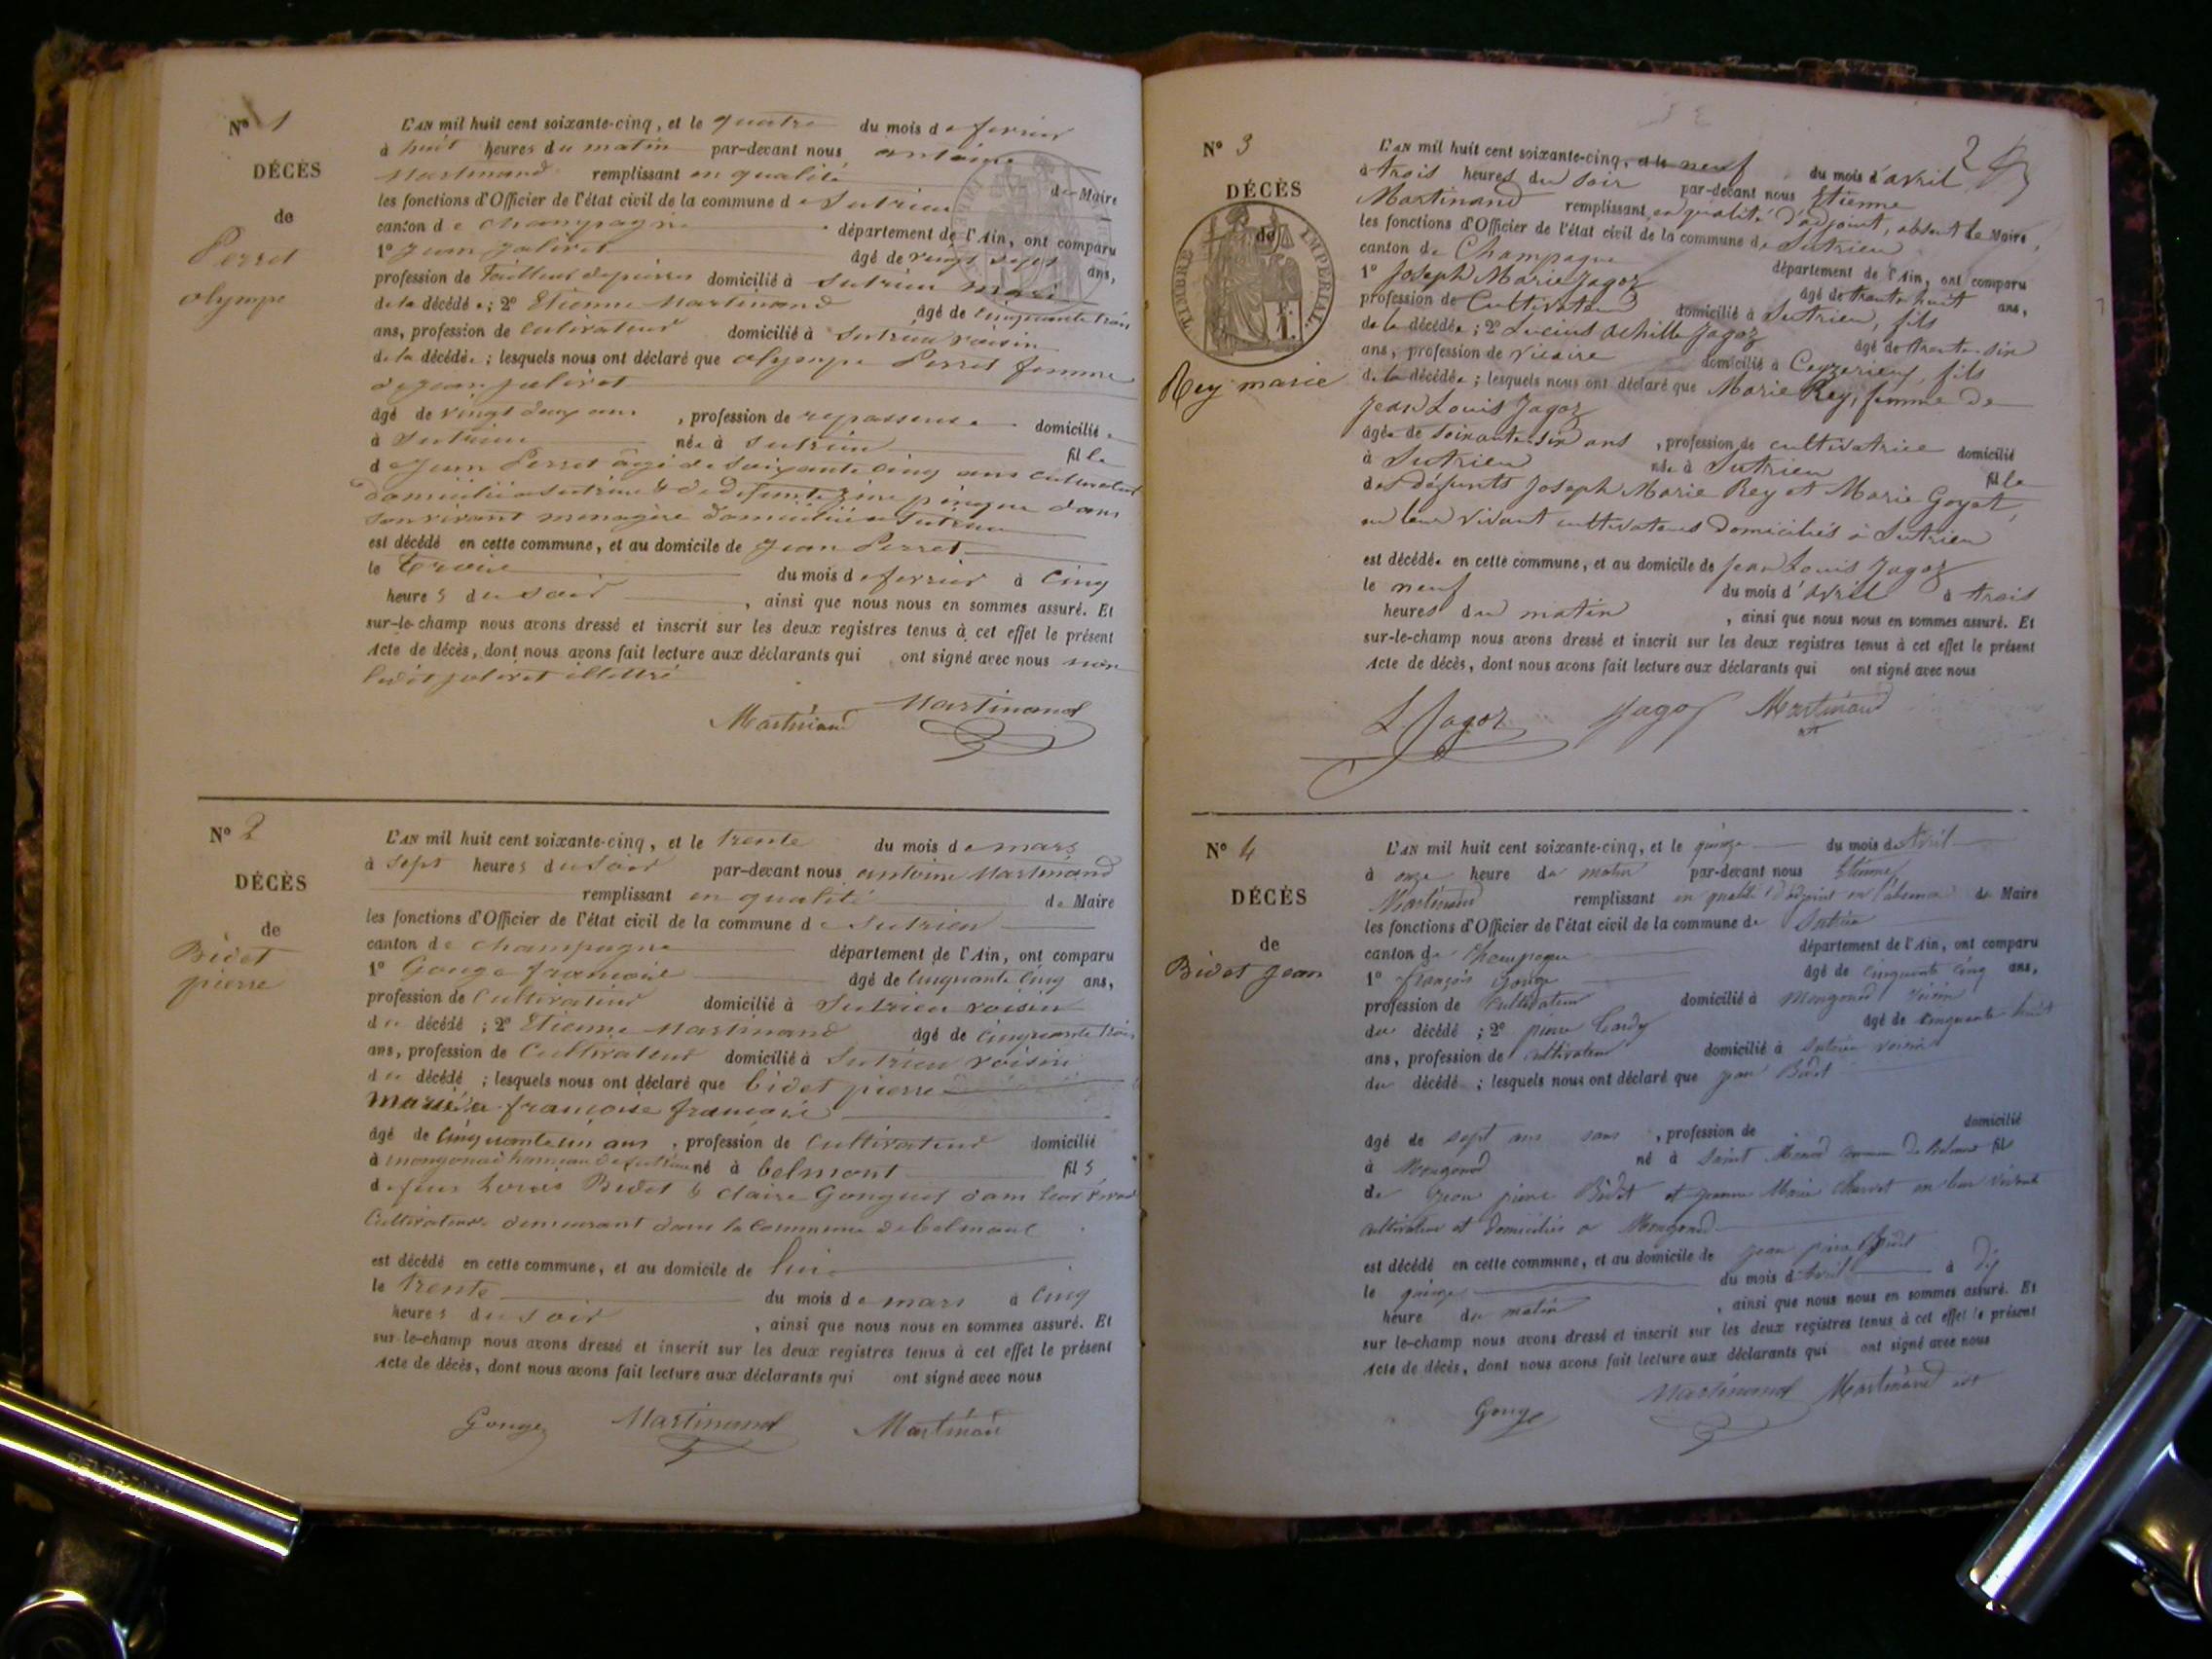 N° 1
DÉCÈS
de
Perret
olympe
L'AN mil huit cent soixante-cinq, et le quatre du mois de fevrier
à huit heures du matin par-devant nous antoine
Martinand remplissant en qualité de Maire
les fonctions d'Officier de l'état civil de la commune de Sutrieu
canton de champagne département de l'Ain, ont comparu
1° Jean âgé de vingt sept ans,
profession de Tailleur de pierres domicilié à Sutrieu mari
de la décédée; 2° Etienne Martinand âgé de cinquante trois
ans, profession de cultivateur domicilié à Sutrieu voisin
de la décédée; lesquels nous ont déclaré que olympe Perret femme
de jean
âgé de vingt deux ans, profession de repasseuse domicilié
à Sutrieu née à Sutrieu fille
de Jean Perret âgé de soixante cinq ans cultivateur
domicilié a Sutrieu & de defunte dans
son vivant menagère domiciliée a Sutrieu
est décédé en cette commune, et au domicile de Jean Perret
le trois du mois de fevrier à cinq
heures du soir, ainsi que nous nous en sommes assuré. Et
sur-le-champ nous avons dressé et inscrit sur les deux registres tenus à cet effet le présent
Acte de décès, dont nous avons fait lecture aux déclarants qui ont signé avec nous non
ledit illettré
Martinand Martinand
N° 2
DÉCÈS
de
Bidet
pierre
L'AN mil huit cent soixante-cinq, et le trente du mois de mars
à sept heures du soir par-devant nous antoine Martinand
remplissant en qualité de Maire
les fonctions d'Officier de l'état civil de la commune de Sutrieu
canton de champagne département de l'Ain, ont comparu
1° Gouge françois âgé de cinquante cinq ans,
profession de cultivateur domicilié à Sutrieu voisin
du décédé; 2° Etienne Martinand âgé de cinquante trois
ans, profession de cultivateur domicilié à Sutrieu voisin
du décédé; lesquels nous ont déclaré que bidet pierre
marié a françoise
âgé de cinquante un ans, profession de cultivateur domicilié
à mongonod hameau de sutrieu né à belmont fils
de feu Louis Bidet & claire dans leur vivant
cultivateurs demeurant dans la commune de belmont
est décédé en cette commune, et au domicile de lui
le trente du mois de mars à cinq
heures du soir, ainsi que nous nous en sommes assuré. Et
sur-le-champ nous avons dressé et inscrit sur les deux registres tenus à cet effet le présent
Acte de décès, dont nous avons fait lecture aux déclarants qui ont signé avec nous
Gouge Martinand Martinand
2
N° 3
DÉCÈS
de
TIMBRE IMPERIAL
1 F.
Rey marie
L'AN mil huit cent soixante-cinq, et le neuf du mois d'avril
à trois heures du soir par-devant nous Etienne
Martinand remplissant en qualité d'adjoint, absent le Maire,
les fonctions d'Officier de l'état civil de la commune de Sutrieu
canton de Champagne département de l'Ain, ont comparu
1° Joseph Marie Jagoz âgé de trente huit ans,
profession de Cultivateur domicilié à Sutrieu, fils
de la décédée; 2° Lucius Achille Jagoz âgé de trente-six
ans, profession de vicaire domicilié à Ceyzerieu, fils
de la décédée; lesquels nous ont déclaré que Marie Rey, femme de
Jean Louis Jagoz
âgée de soixante-six ans, profession de cultivatrice domicilié
à Sutrieu née à Sutrieu fille
des défunts Joseph Marie Rey et Marie Goyot,
en leur vivant cultivateurs domiciliés à Sutrieu
est décédée en cette commune, et au domicile de Jean Louis Jagoz
le neuf du mois d'avril à trois
heures du matin, ainsi que nous nous en sommes assuré. Et
sur-le-champ nous avons dressé et inscrit sur les deux registres tenus à cet effet le présent
Acte de décès, dont nous avons fait lecture aux déclarants qui ont signé avec nous
L. Jagoz Jagoz Martinand
N° 4
DÉCÈS
de
Bidet Jean
L'AN mil huit cent soixante-cinq, et le quinze du mois de Avril
à onze heure du matin par-devant nous Etienne
Martinand remplissant en qualité d'adjoint en l'absence du Maire
les fonctions d'Officier de l'état civil de la commune de Sutrieu
canton de Champagne département de l'Ain, ont comparu
1° françois Gouge âgé de cinquante cinq ans,
profession de cultivateur domicilié à Mongonod voisin
du décédé; 2° pierre âgé de cinquante huit
ans, profession de cultivateur domicilié à Sutrieu voisin
du décédé; lesquels nous ont déclaré que jean Bidet
âgé de sept ans sans, profession de domicilié
à Mongonod né à Saint commune de belmont fils
de Jean pierre Bidet et jeanne Marie Charvet en leur vivant
cultivateur et domiciliés a Mongonod
est décédé en cette commune, et au domicile de jean pierre Bidet
le quinze du mois d Avril à dix
heure du matin, ainsi que nous nous en sommes assuré. Et
sur le-champ nous avons dressé et inscrit sur les deux registres tenus à cet effet le présent
Acte de décès, dont nous avons fait lecture aux déclarants qui ont signé avec nous
Gouge Martinand Martinand